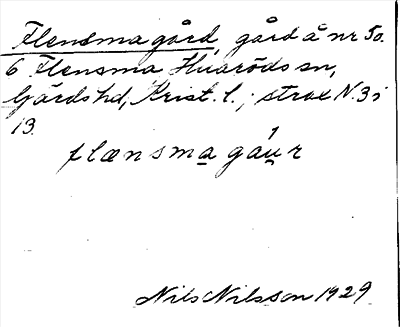 Flensmagård, gård å nr 50.
6 Flensma Huaröds sn,
Gärds hd, Krist. l.; strax N. 3 i
13.
flænsmagáu̯r
Nils Nilsson 1929